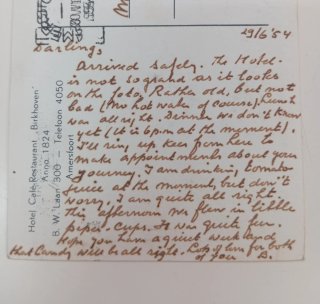 29/6 '54
Darlings
Arrived safely. The Hotel
is not so grand as it looks
on the foto, Rather old, but not
bad (no hot water of course). Lunch
was all right. Dinner we don't know
yet (it is 6 pm at the moment).
I'll ring up from here to
make appointments about your
journey. I am drinking tomato
juice at the moment, but don't
worry. I am quite all right
this afternoon we flew in little
paper-cups. It was quite fun.
Hope you have a quiet weekend
that Candy will be all right. Lots of love for both
of you D.
Hotel Café-Restaurant „Birkhoven"
Anno 1824
B. W. Laan 300 — Telefoon 4050
Amersfoort